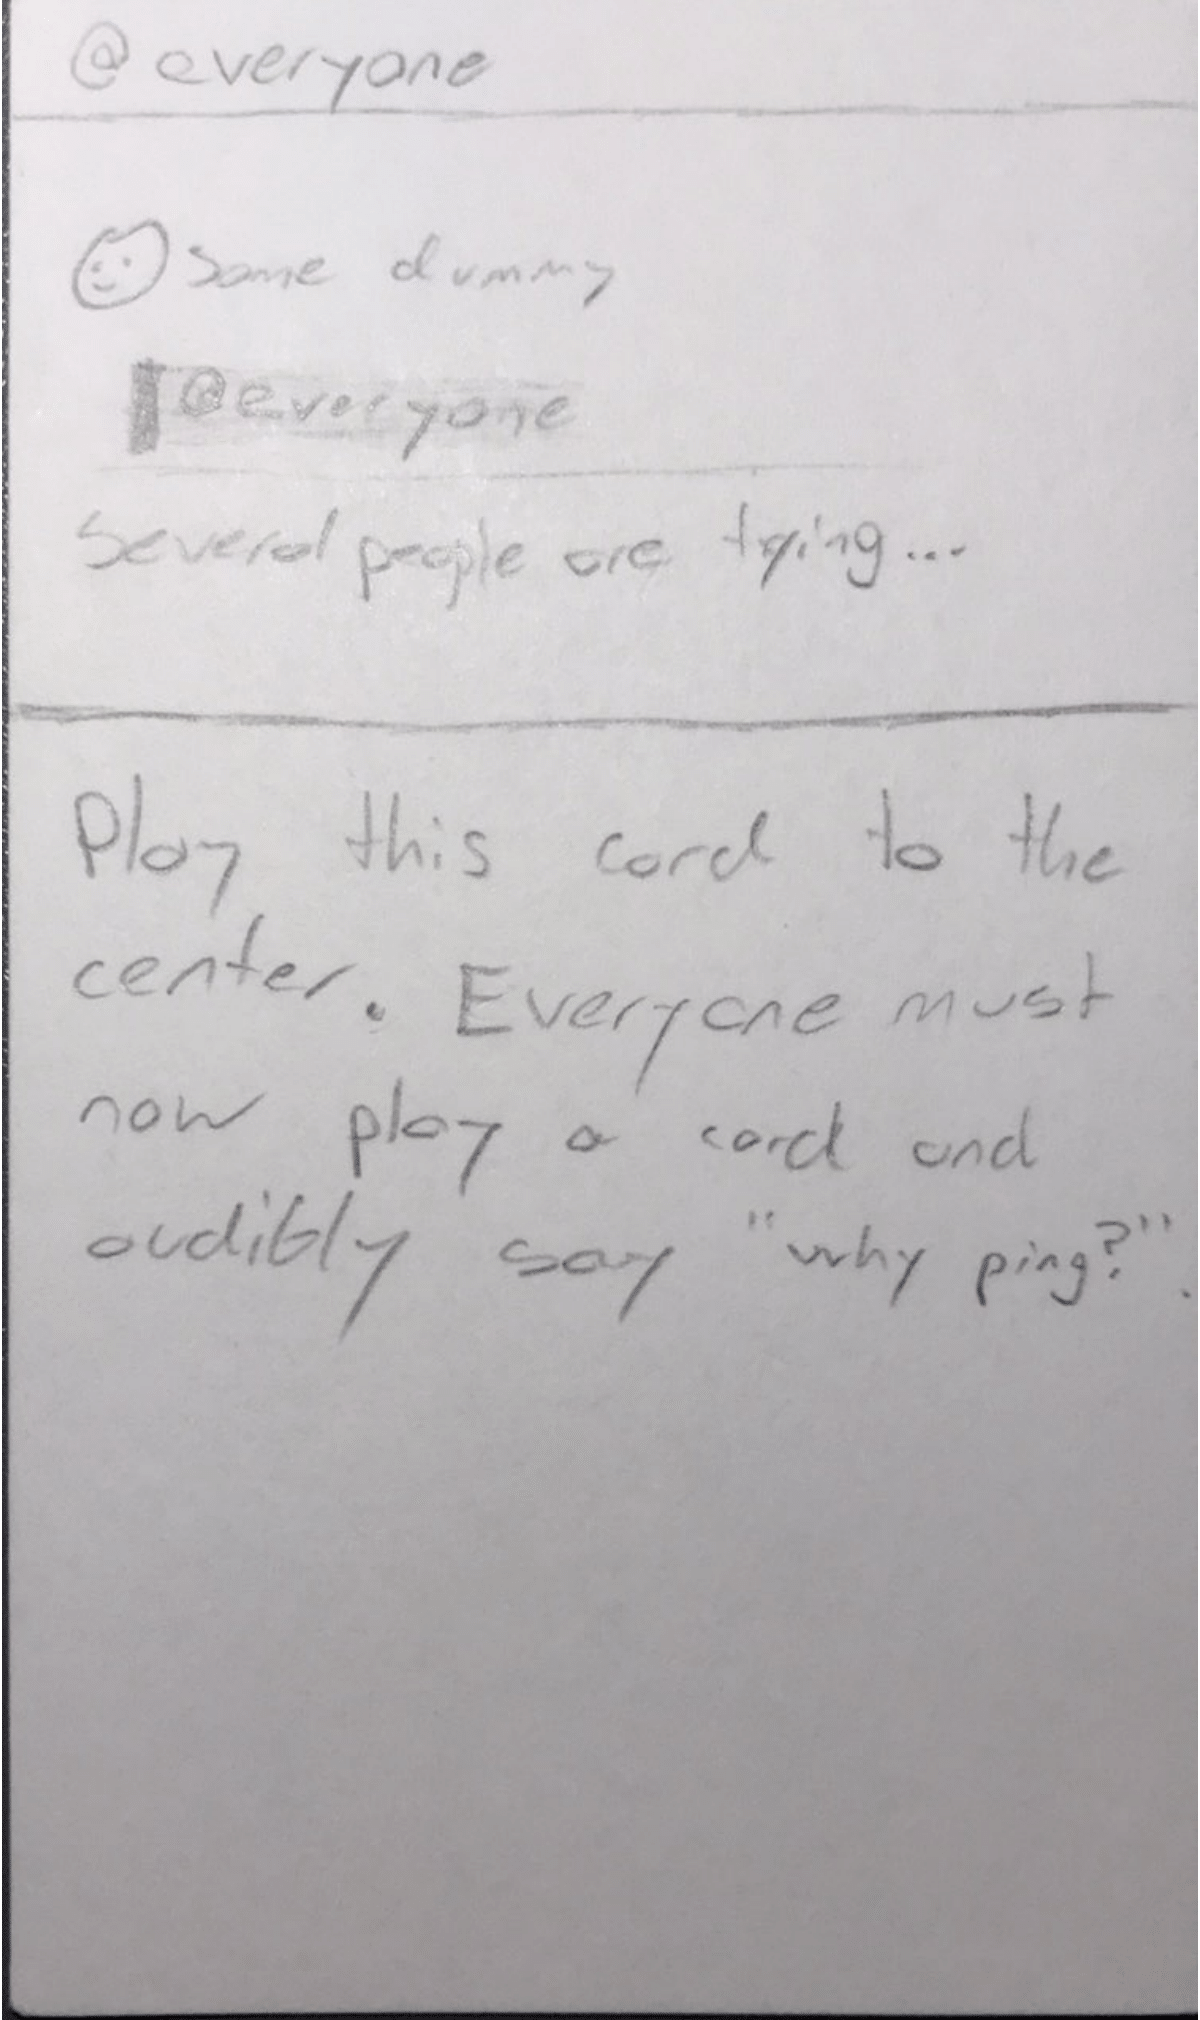 @everyone
Some dummy
@everyone
Several people are typing...
Play this card to the
center. Everyone must
now play a card and
audibly say "why ping?".